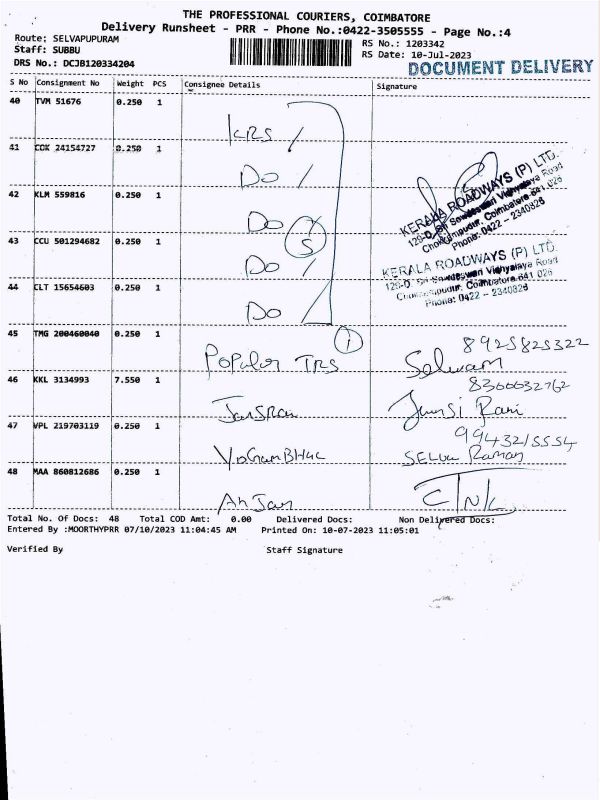 THE PROFESSIONAL COURIERS, COIMBATORE
Delivery Runsheet - PRR - Phone No.:0422-3505555 - Page No.:4
Route: SELVAPUPURAM
RS No.: 1203342
Staff: SUBBU
RS Date: 10-Jul-2023
DRS No.: DCJB120334204
DOCUMENT DELIVERY
S No Consignment No Weight PCS Consignee Details Signature
40 TVM 51676 0.250 1
KRS /
41 COK 24154727 0.250 1
Do /
42 KLM 559816 0.250 1
Do
KERALA ROADWAYS (P) LTD.
129-D, Sri Sowdeswari Vidhyalaya Road
Chokkampudur, Coimbatore-641 026
Phone: 0422 - 2340826
5
43 CCU 501294682 0.250 1
Do /
KERALA ROADWAYS (P) LTD.
129-D, Sri Sowdeswari Vidhyalaya Road
Chokkampudur, Coimbatore-641 026
Phone: 0422 - 2340826
44 CLT 15654603 0.250 1
Do /
45 TMG 200460040 0.250 1
1
8925825322
Popular TRS
Selvam
46 KKL 3134993 7.550 1
8300032762
Jansi Rani
47 VPL 219703119 0.250 1
9943215554
SELVA Raman
48 MAA 860812686 0.250 1
Anjan
Total No. Of Docs: 48 Total COD Amt: 0.00 Delivered Docs: Non Delivered Docs:
Entered By :MOORTHYPRR 07/10/2023 11:04:45 AM Printed On: 10-07-2023 11:05:01
Verified By Staff Signature